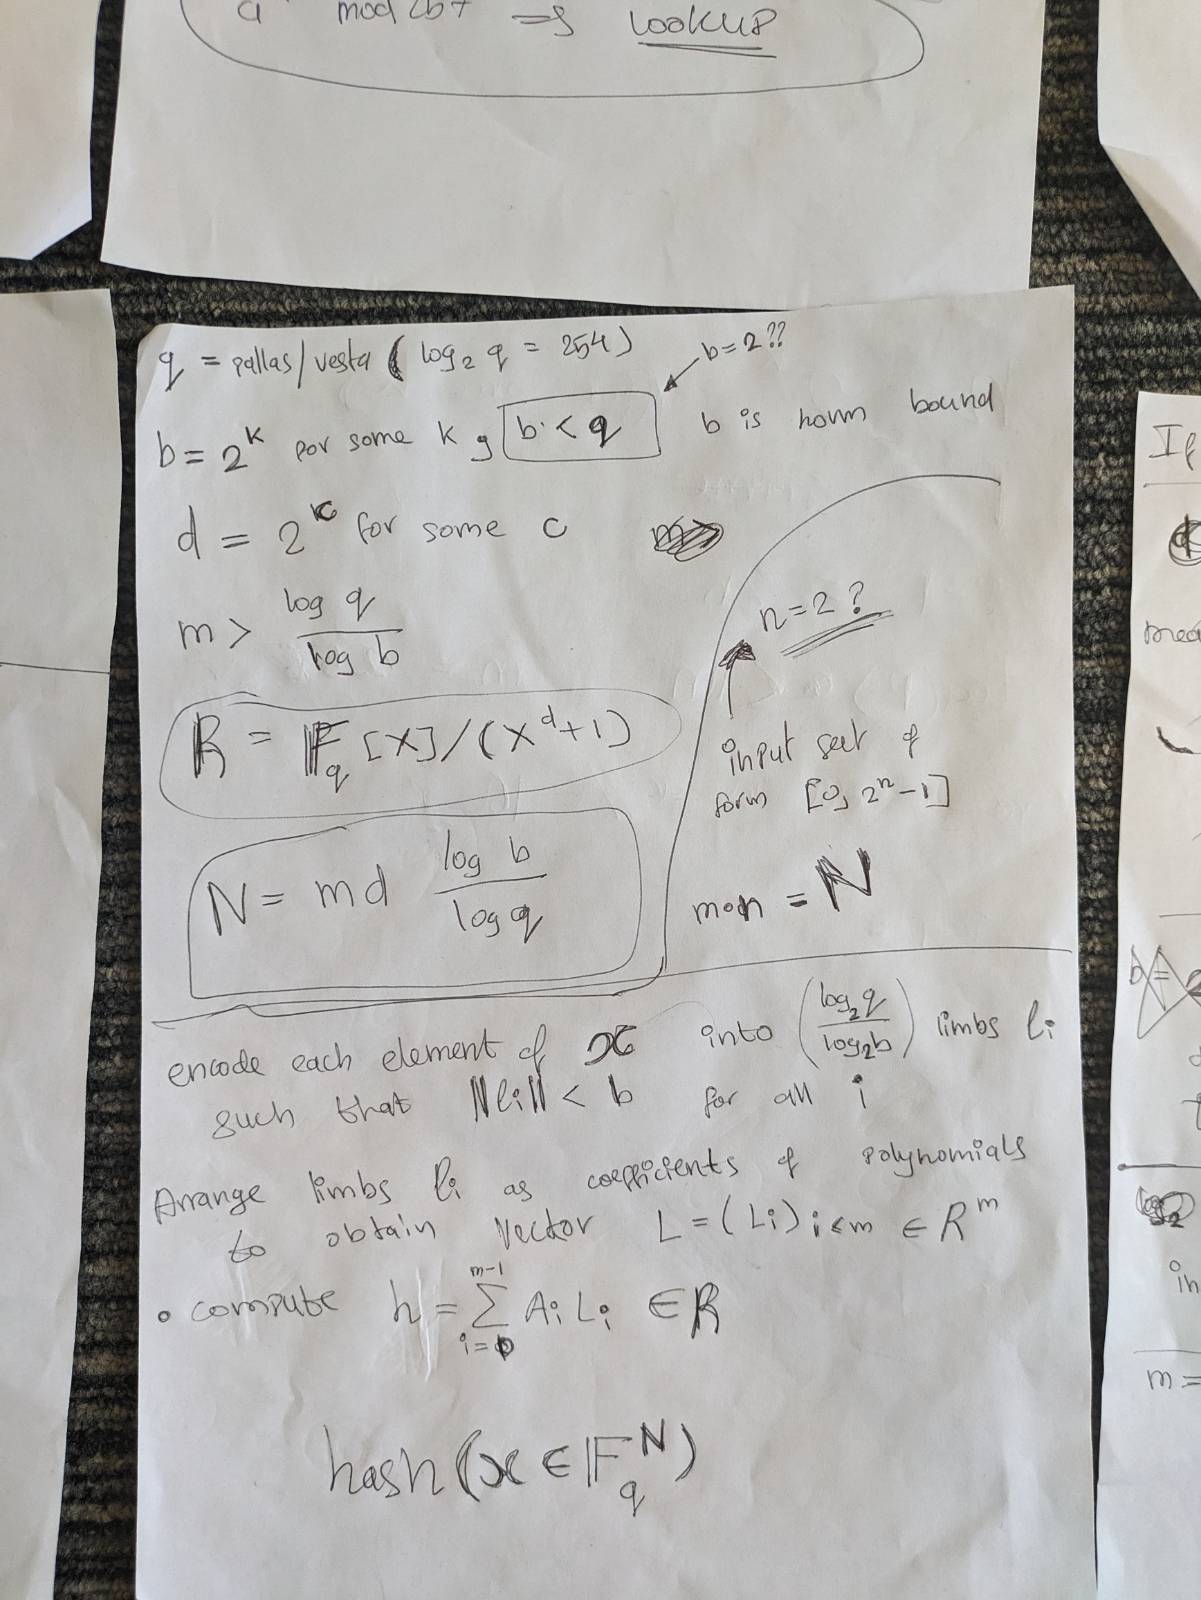 mod => LOOKUP
q = pallas/vesta ( log₂ q = 254)
b=2??
b = 2^k for some k, b < q
b is norm bound
d = 2^c for some c
m > log q / log b
n=2?
R = F_q [X]/(X^d+1)
input set of
form [0, 2^n-1]
N = md log b / log q
m·n = N
encode each element of x into (log₂q / log₂b) limbs li
such that ‖li‖ < b for all i
Arrange limbs li as coefficients of polynomials
to obtain vector L = (Li) i<m ∈ R^m
• compute h = Σ_{i=0}^{m-1} Ai Li ∈ R
hash(x ∈ F_q^N)
If
b=
log₂
in
m =